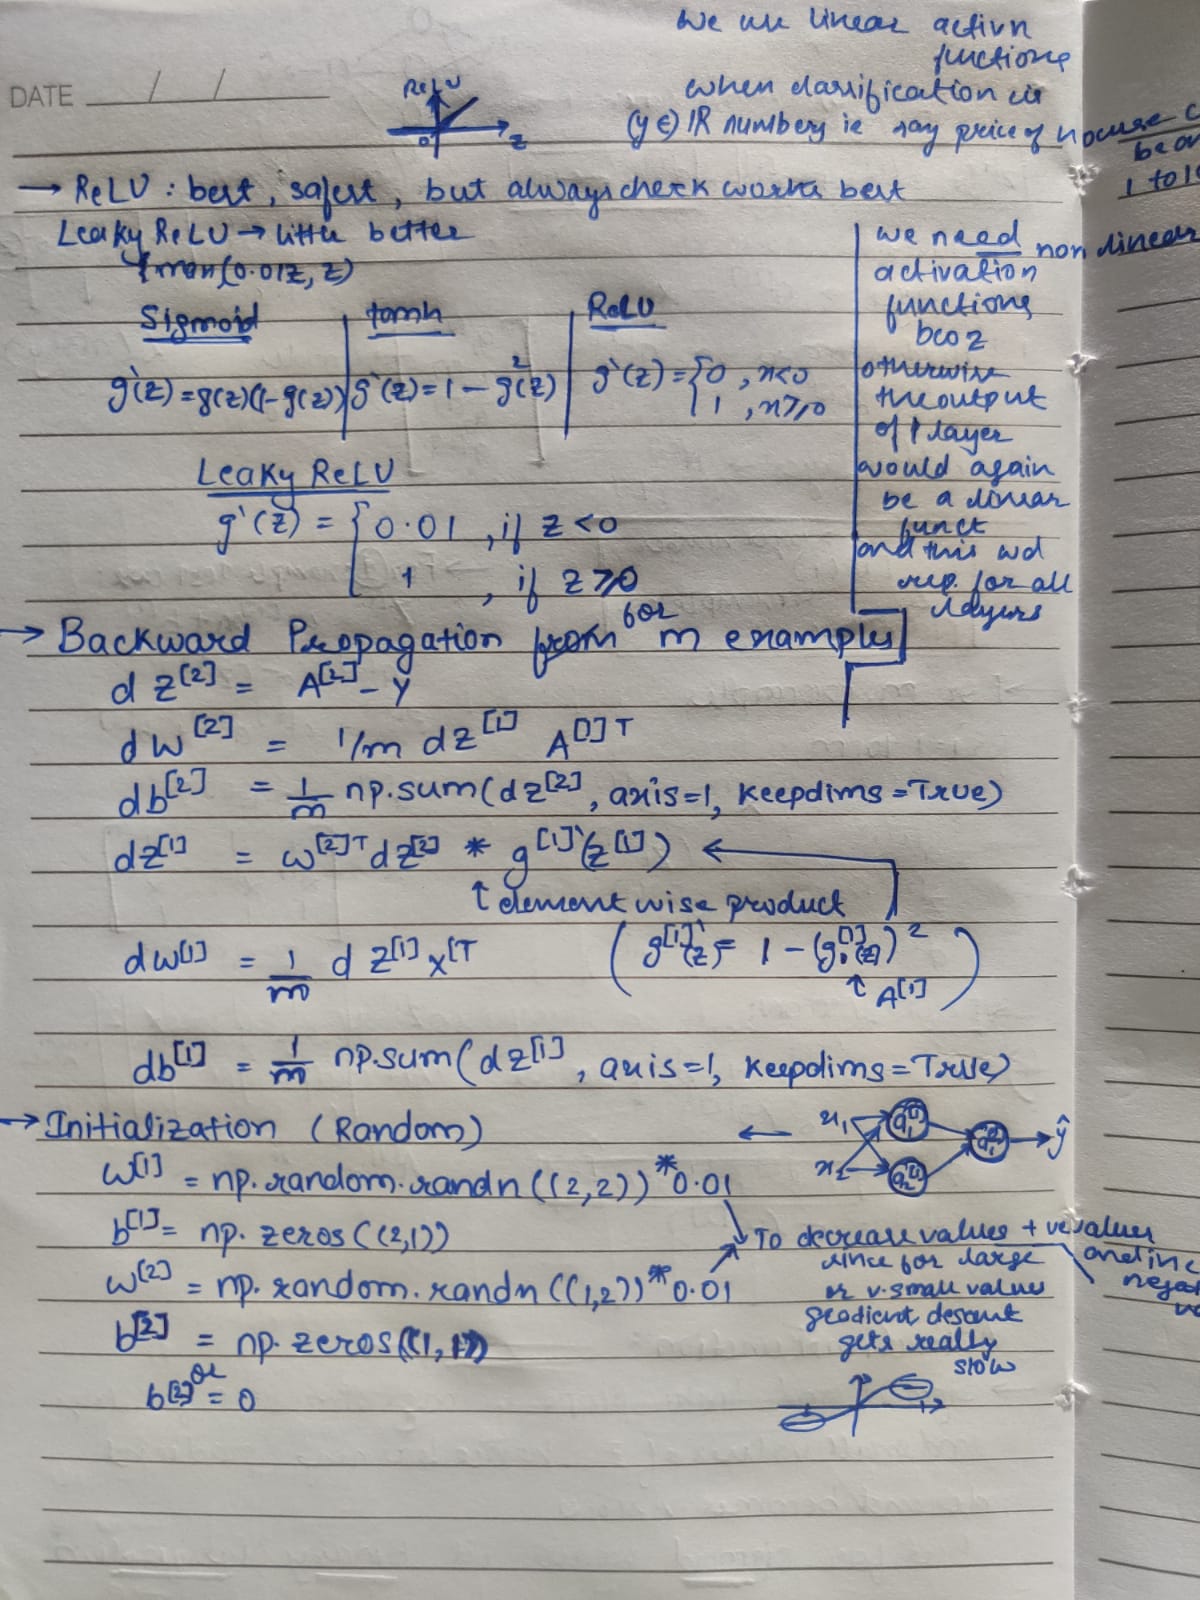 We use linear activn
functions
when classification is
(y ∈) IR numbers ie say price of house c
be an
1 to 10
DATE / /
ReLU
0
z
→ ReLU : best, safest, but always check works best
Leaky ReLU → little better
max(0.01z, z)
Sigmoid
g'(z) = g(z)(1-g(z))
tanh
g'(z) = 1 - g²(z)
ReLU
g'(z) = { 0 , x<0
1 , x≥0
we need non linear
activation
functions
bcoz
otherwise
the output
of 1 layer
would again
be a linear
funct
and this wd
rep. for all
layers
Leaky ReLU
g'(z) = { 0.01 , if z <0
1 , if z ≥0
→ Backward Propagation for m examples
dz[2] = A[2] - Y
dw[2] = 1/m dz[1] A[1]T
db[2] = 1/m np.sum(dz[2], axis=1, keepdims=True)
dz[1] = w[2]T dz[2] * g[1]'(z[1])
↑ element wise product
dw[1] = 1/m dz[1] x[T
(g[1]'(z) = 1 - (g[1](z))²)
↑ A[1]
db[1] = 1/m np.sum(dz[1], axis=1, keepdims=True)
→ Initialization (Random)
←
x1
x2
a1[1]
a2[1]
a1[2]
→ ŷ
w[1] = np.random.randn((2,2))*0.01
b[1] = np.zeros((2,1))
w[2] = np.random.randn((1,2))*0.01
b[2] = np.zeros((1,1))
or
b[2] = 0
→ To decrease values + ve values
and inc
negat
since for large
or v.small values
gradient descent
gets really
slow